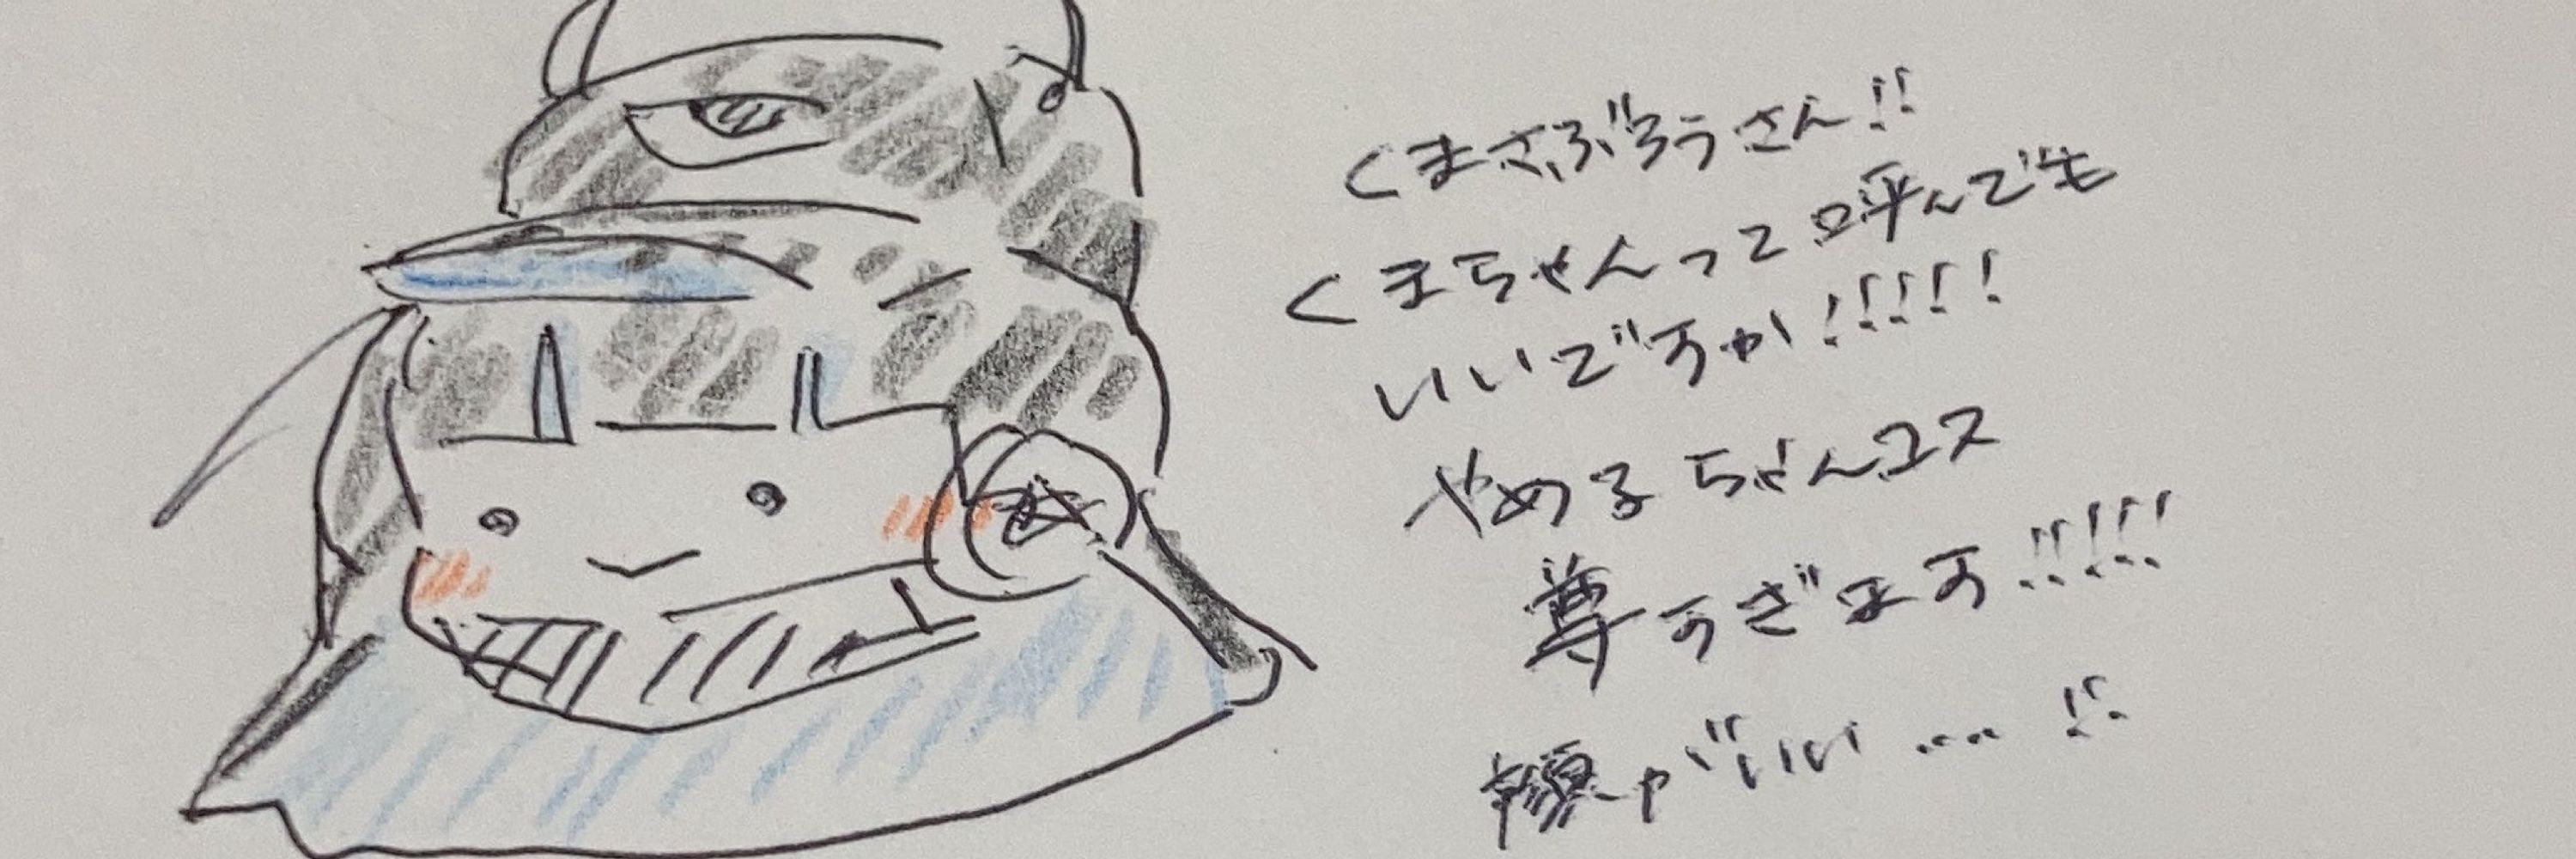 くまさぶろうさん!!
くまちゃんって呼んでも
いいですか!!!!!
やめるちゃんコス
尊すぎます!!!!!
顔がいい……!!